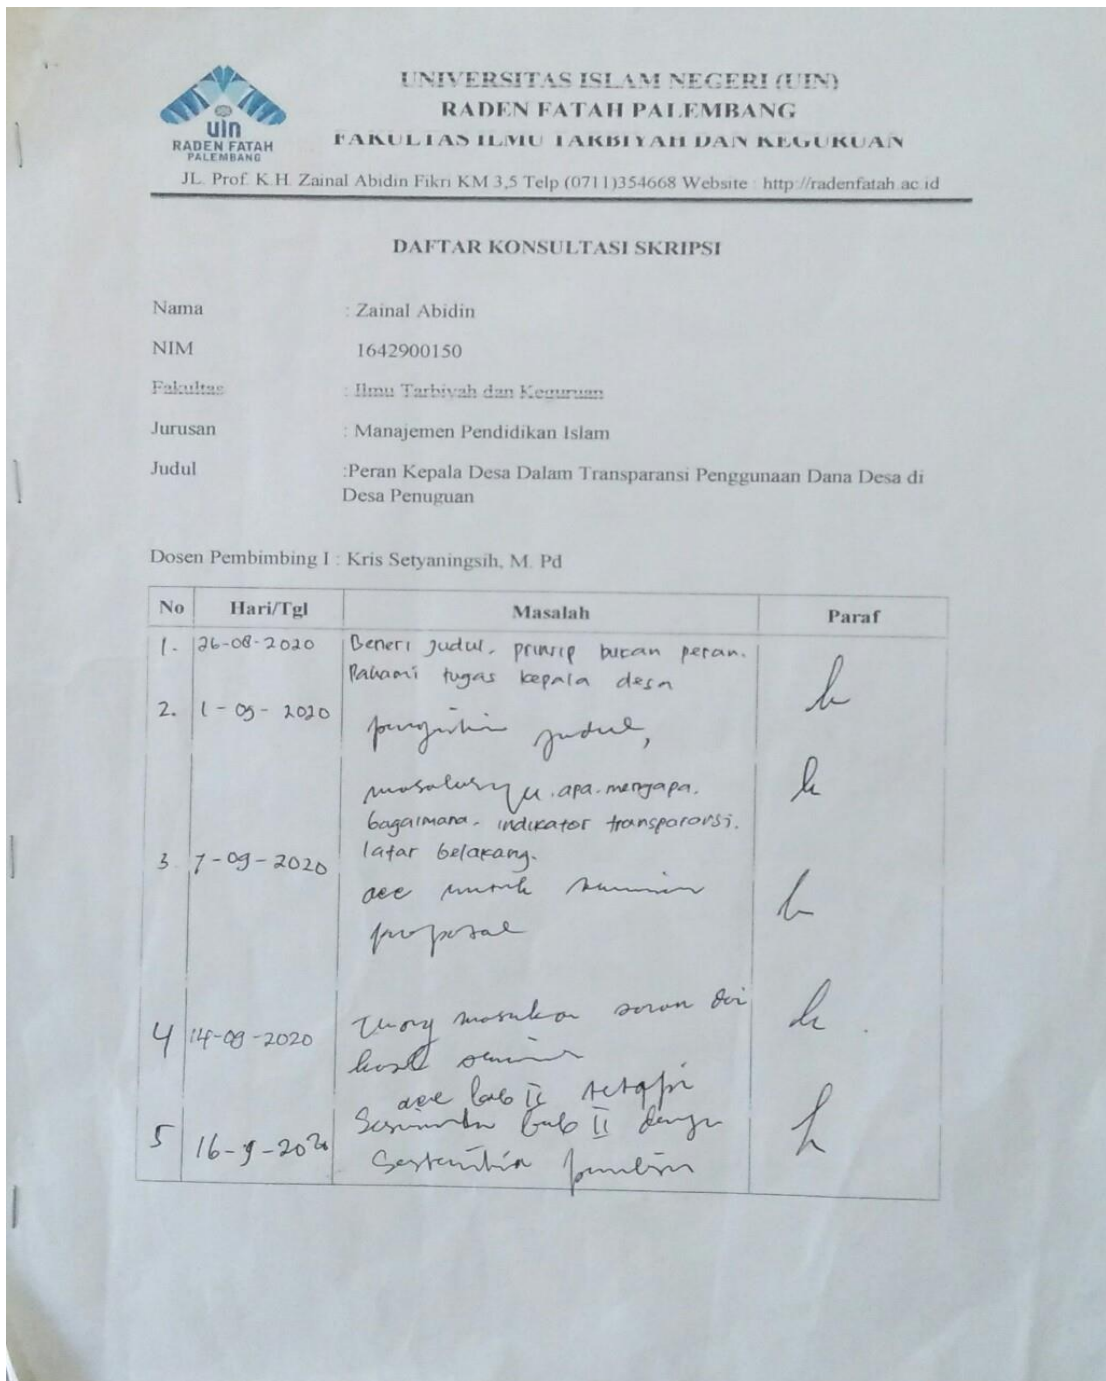 uin
RADEN FATAH
PALEMBANG
UNIVERSITAS ISLAM NEGERI (UIN)
RADEN FATAH PALEMBANG
FAKULTAS ILMU TARBIYAH DAN KEGURUAN
JL. Prof. K.H. Zainal Abidin Fikri KM 3,5 Telp (0711)354668 Website : http://radenfatah.ac.id
DAFTAR KONSULTASI SKRIPSI
Nama : Zainal Abidin
NIM 1642900150
Fakultas : Ilmu Tarbiyah dan Keguruan
Jurusan : Manajemen Pendidikan Islam
Judul :Peran Kepala Desa Dalam Transparansi Penggunaan Dana Desa di
Desa Penuguan
Dosen Pembimbing I : Kris Setyaningsih, M. Pd
No Hari/Tgl Masalah Paraf
1. 26-08-2020 Beneri judul, prinsip bukan peran.
Pahami tugas kepala desa
2. 1-09-2020
judul,
masalahnya apa. mengapa.
bagaimana. indikator transparansi.
latar belakang.
3. 7-09-2020
acc untuk seminar
proposal
4 14-09-2020 masukan saran dari
hasil seminar
acc bab II tetapi
5 16-9-2020 bab II dengan